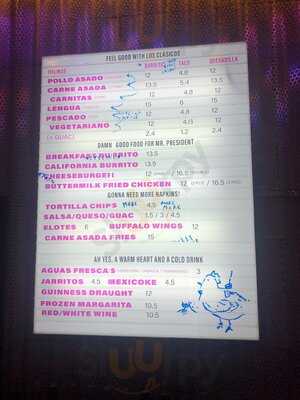 FEEL GOOD WITH LOS CLÁSICOS
BURRITO TACO QUESADILLA
POLLO ASADO 12 4.8 12
CARNE ASADA 13.5 5.4 13.5
CARNITAS 12 4.8 12
LENGUA 15 6 15
PESCADO 12 4.8 12
VEGETARIANO 12 12
(+ GUAC) 2.4 1.2 2.4
DAMN GOOD FOOD FOR MR. PRESIDENT
BREAKFAST BURRITO 13.5
CALIFORNIA BURRITO 13.5
CHEESEBURGER 12 / 16.5
BUTTERMILK FRIED CHICKEN 12 / 16.5
GONNA NEED MORE NAPKINS!
TORTILLA CHIPS 4.5
SALSA/QUESO/GUAC 1.5 / 3 / 4.5
ELOTES 6 BUFFALO WINGS 12
CARNE ASADA FRIES 15
AH YES, A WARM HEART AND A COLD DRINK
AGUAS FRESCAS 3
JARRITOS 4.5 MEXICOKE 4.5
GUINNESS DRAUGHT 12
FROZEN MARGARITA 10.5
RED/WHITE WINE 10.5